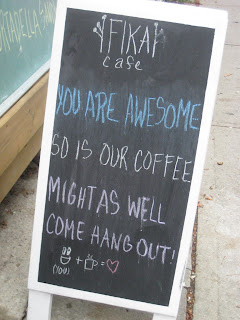 FIKA
cafe
YOU ARE AWESOME
SO IS OUR COFFEE
MIGHT AS WELL
COME HANG OUT!
+ =
(YOU)